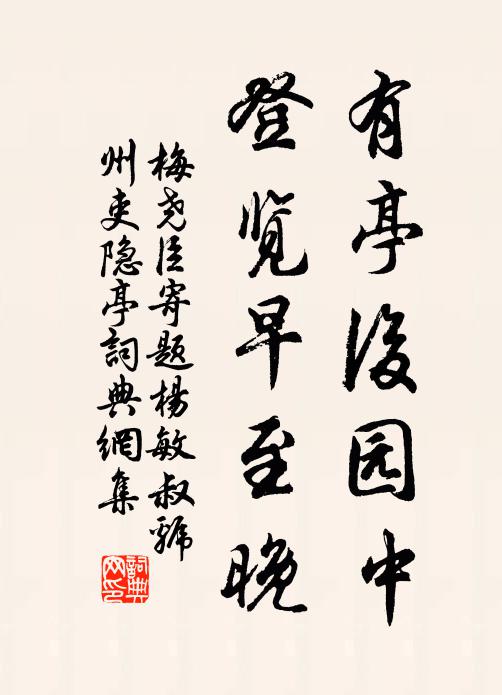 有亭後园中
登览早至晚
梅尧臣寄题楊敏叔虢
州吏隐亭詞典網集
詞典
网印